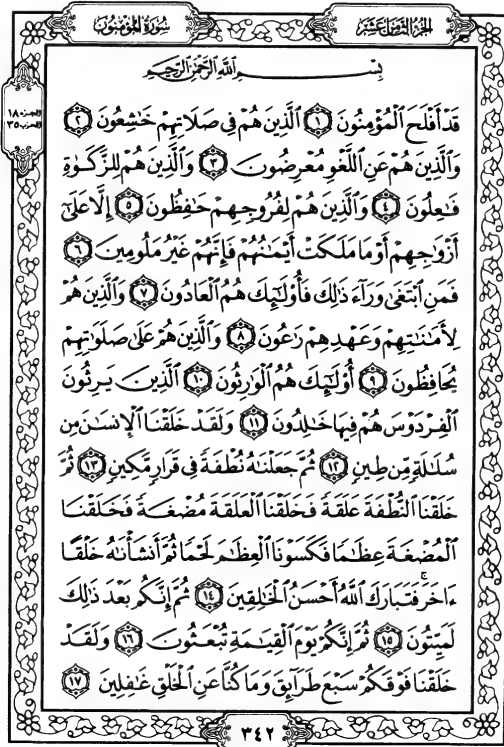 سُورَةُ المُؤْمِنُون
الجُزْءُ الثَّامِنَ عَشَرَ
الجزء ١٨
الحزب ٣٥
بِسْمِ ٱللَّهِ ٱلرَّحْمَٰنِ ٱلرَّحِيمِ
قَدْ أَفْلَحَ ٱلْمُؤْمِنُونَ ١ ٱلَّذِينَ هُمْ فِي صَلَاتِهِمْ خَٰشِعُونَ ٢
وَٱلَّذِينَ هُمْ عَنِ ٱللَّغْوِ مُعْرِضُونَ ٣ وَٱلَّذِينَ هُمْ لِلزَّكَوٰةِ
فَٰعِلُونَ ٤ وَٱلَّذِينَ هُمْ لِفُرُوجِهِمْ حَٰفِظُونَ ٥ إِلَّا عَلَىٰٓ
أَزْوَٰجِهِمْ أَوْ مَا مَلَكَتْ أَيْمَٰنُهُمْ فَإِنَّهُمْ غَيْرُ مَلُومِينَ ٦
فَمَنِ ٱبْتَغَىٰ وَرَآءَ ذَٰلِكَ فَأُو۟لَٰٓئِكَ هُمُ ٱلْعَادُونَ ٧ وَٱلَّذِينَ هُمْ
لِأَمَٰنَٰتِهِمْ وَعَهْدِهِمْ رَٰعُونَ ٨ وَٱلَّذِينَ هُمْ عَلَىٰ صَلَوَٰتِهِمْ
يُحَافِظُونَ ٩ أُو۟لَٰٓئِكَ هُمُ ٱلْوَٰرِثُونَ ١٠ ٱلَّذِينَ يَرِثُونَ
ٱلْفِرْدَوْسَ هُمْ فِيهَا خَٰلِدُونَ ١١ وَلَقَدْ خَلَقْنَا ٱلْإِنسَٰنَ مِن
سُلَٰلَةٍ مِّن طِينٍ ١٢ ثُمَّ جَعَلْنَٰهُ نُطْفَةً فِي قَرَارٍ مَّكِينٍ ١٣ ثُمَّ
خَلَقْنَا ٱلنُّطْفَةَ عَلَقَةً فَخَلَقْنَا ٱلْعَلَقَةَ مُضْغَةً فَخَلَقْنَا
ٱلْمُضْغَةَ عِظَٰمًا فَكَسَوْنَا ٱلْعِظَٰمَ لَحْمًا ثُمَّ أَنشَأْنَٰهُ خَلْقًا
ءَاخَرَ ۚ فَتَبَارَكَ ٱللَّهُ أَحْسَنُ ٱلْخَٰلِقِينَ ١٤ ثُمَّ إِنَّكُم بَعْدَ ذَٰلِكَ
لَمَيِّتُونَ ١٥ ثُمَّ إِنَّكُمْ يَوْمَ ٱلْقِيَٰمَةِ تُبْعَثُونَ ١٦ وَلَقَدْ
خَلَقْنَا فَوْقَكُمْ سَبْعَ طَرَآئِقَ وَمَا كُنَّا عَنِ ٱلْخَلْقِ غَٰفِلِينَ ١٧
٣٤٢